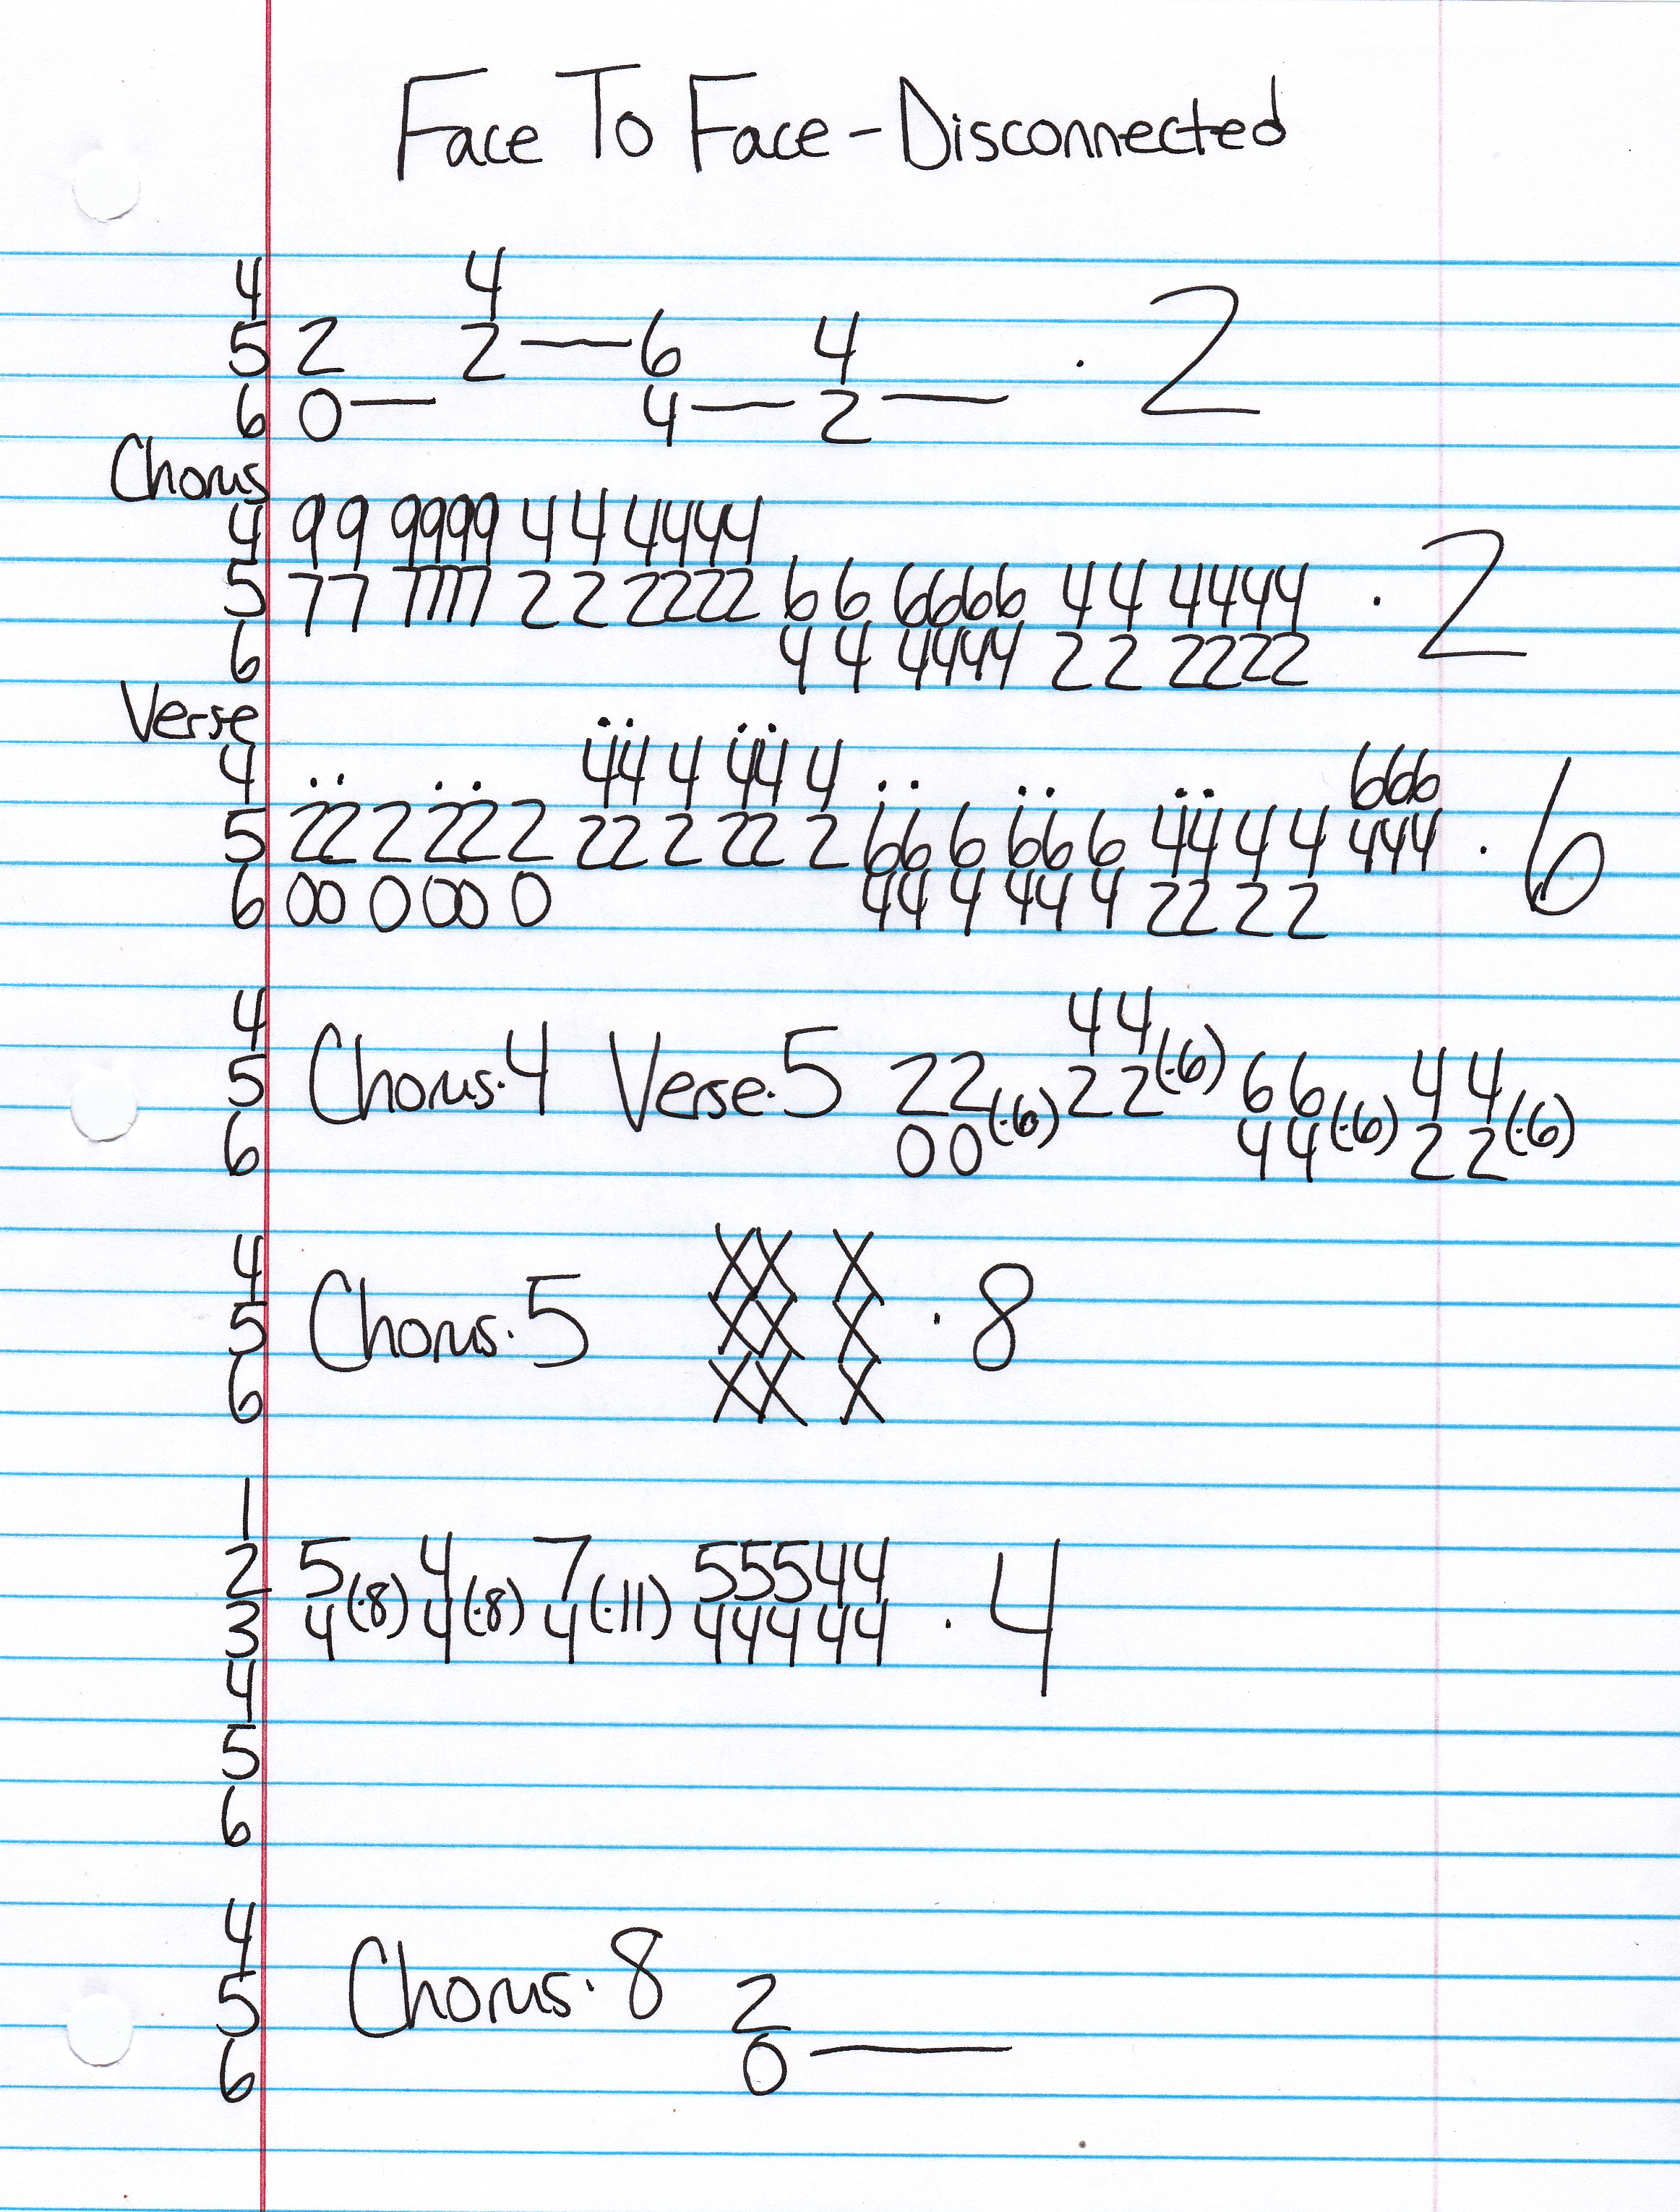 Face To Face - Disconnected
4 4
5 2 2 — 6 4 · 2
6 0 — 4 — 2 —
Chorus
4 99 9999 4 4 4444
5 77 7777 2 2 2222 6 6 6666 4 4 4444 · 2
6 4 4 4444 2 2 2222
Verse
4 44 4 44 4 666
5 22 2 22 2 22 2 22 2 66 6 66 6 44 4 4 444 · 6
6 00 0 00 0 44 4 44 4 22 2 2
4 44
5 Chorus·4 Verse·5 22(·6) 22(·6) 66(·6) 44(·6)
6 00 44 22
4 XX X
5 Chorus·5 XX X · 8
6 XX X
1
2 5(·8) 4(·8) 7(·11) 55544
3 4 4 4 44444 · 4
4
5
6
4
5 Chorus·8 2
6 0 —